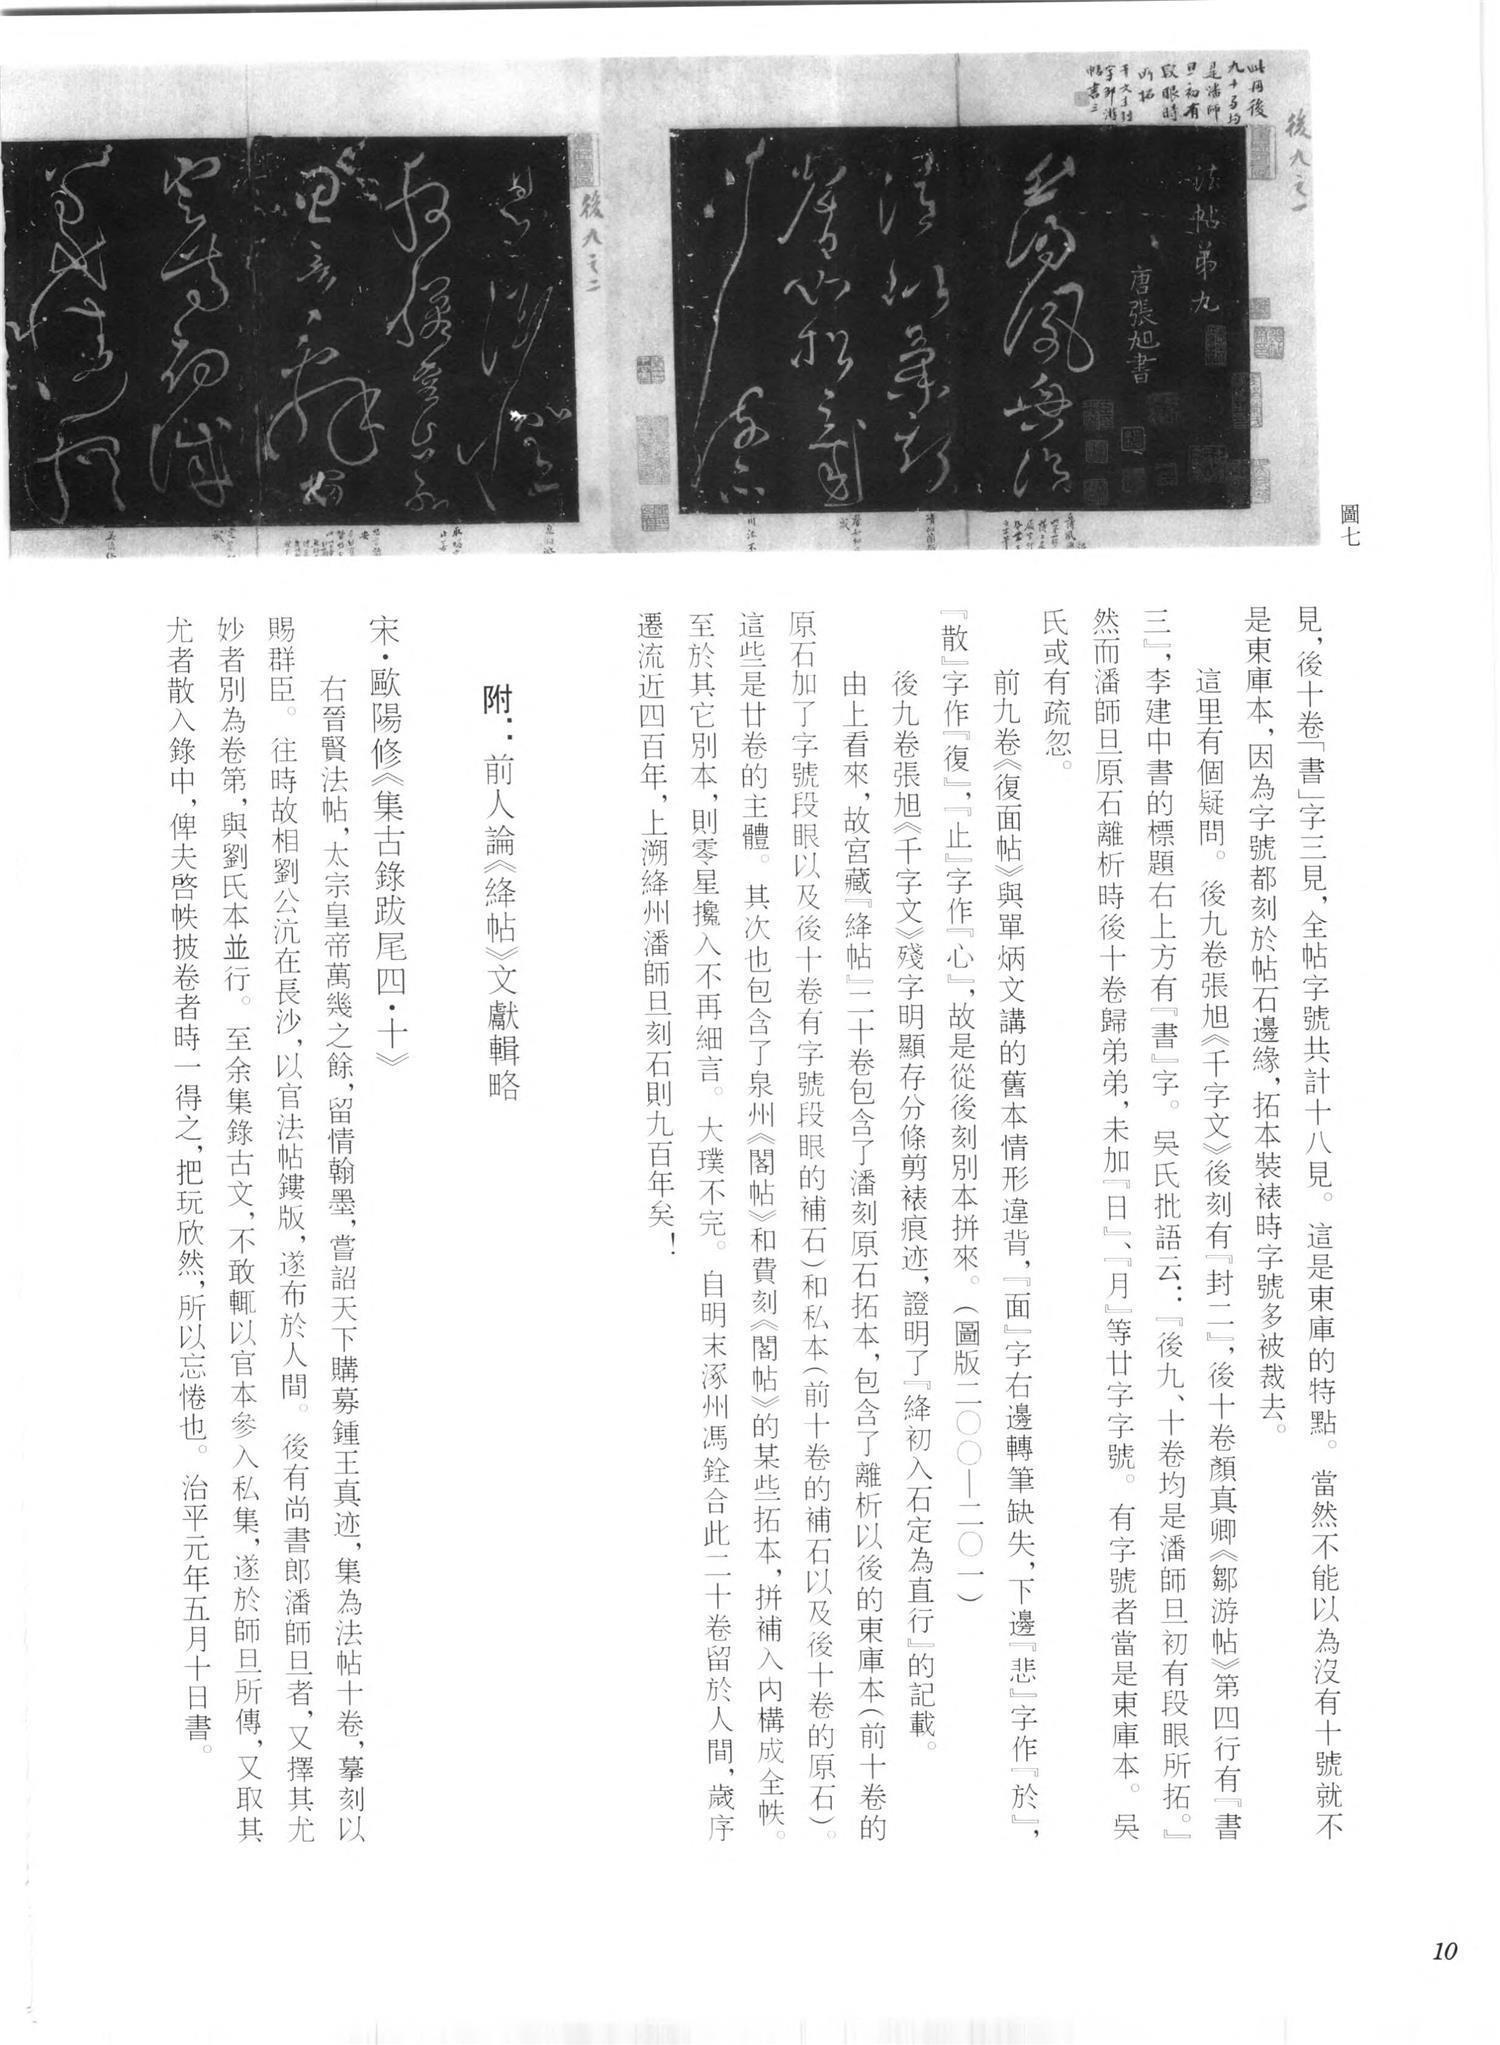 後九之一
法帖第九
唐張旭書
後九之二
圖七
見，後十卷「書」字三見，全帖字號共計十八見。這是東庫的特點。當然不能以為沒有十號就不
是東庫本，因為字號都刻於帖石邊緣，拓本裝裱時字號多被裁去。
這里有個疑問。後九卷張旭《千字文》後刻有『封二』，後十卷顏真卿《鄒游帖》第四行有『書
三』，李建中書的標題右上方有『書』字。吳氏批語云：『後九、十卷均是潘師旦初有段眼所拓。』
然而潘師旦原石離析時後十卷歸弟弟，未加『日』、『月』等廿字字號。有字號者當是東庫本。吳
氏或有疏忽。
前九卷《復面帖》與單炳文講的舊本情形違背，『面』字右邊轉筆缺失，下邊『悲』字作『於』，
『散』字作『復』，『止』字作『心』，故是從後刻別本拼來。（圖版二〇〇—二〇一）
後九卷張旭《千字文》殘字明顯存分條剪裱痕迹，證明了『絳初入石定為直行』的記載。
由上看來，故宮藏『絳帖』二十卷包含了潘刻原石拓本，包含了離析以後的東庫本（前十卷的
原石加了字號段眼以及後十卷有字號段眼的補石）和私本（前十卷的補石以及後十卷的原石）。
這些是廿卷的主體。其次也包含了泉州《閣帖》和費刻《閣帖》的某些拓本，拼補入內構成全帙。
至於其它別本，則零星攙入不再細言。大璞不完。自明末涿州馮銓合此二十卷留於人間，歲序
遷流近四百年，上溯絳州潘師旦刻石則九百年矣！
附：前人論《絳帖》文獻輯略
宋·歐陽修《集古錄跋尾四·十》
右晉賢法帖，太宗皇帝萬幾之餘，留情翰墨，嘗詔天下購募鍾王真迹，集為法帖十卷，摹刻以
賜群臣。往時故相劉公沆在長沙，以官法帖鏤版，遂布於人間。後有尚書郎潘師旦者，又擇其尤
妙者別為卷第，與劉氏本並行。至余集錄古文，不敢輒以官本參入私集，遂於師旦所傳，又取其
尤者散入錄中，俾夫啓帙披卷者時一得之，把玩欣然，所以忘惓也。治平元年五月十日書。
10